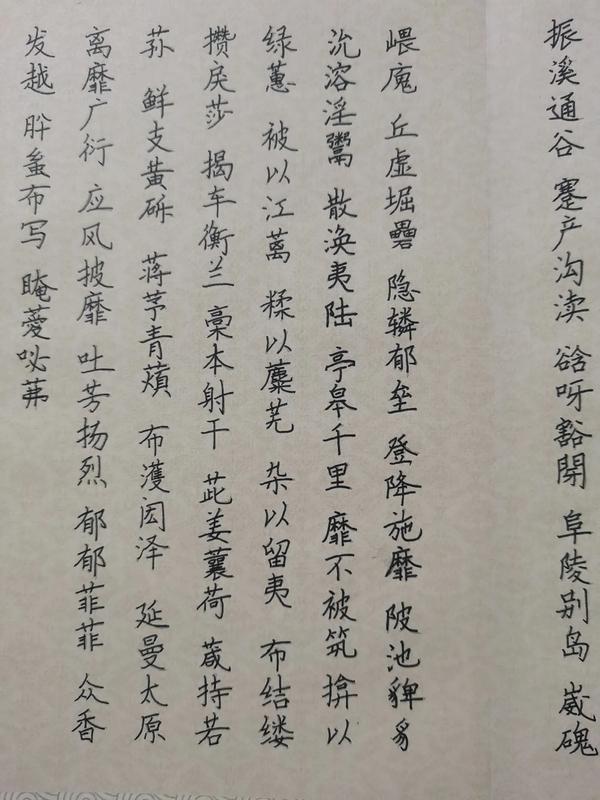 振溪通谷 蹇产沟渎 谽呀豁閕 阜陵别岛 崴磈
嵔廆 丘虚堀礨 隐辚郁垒 登降施靡 陂池貏豸
沇溶淫鬻 散涣夷陆 亭皋千里 靡不被筑 揜以
绿蕙 被以江蓠 糅以蘪芜 杂以留夷 布结缕
攒戾莎 揭车衡兰 稾本射干 茈姜蘘荷 葴持若
荪 鲜支黄砾 蒋芧青薠 布濩闳泽 延曼太原
离靡广衍 应风披靡 吐芳扬烈 郁郁菲菲 众香
发越 肸蚃布写 晻薆咇茀